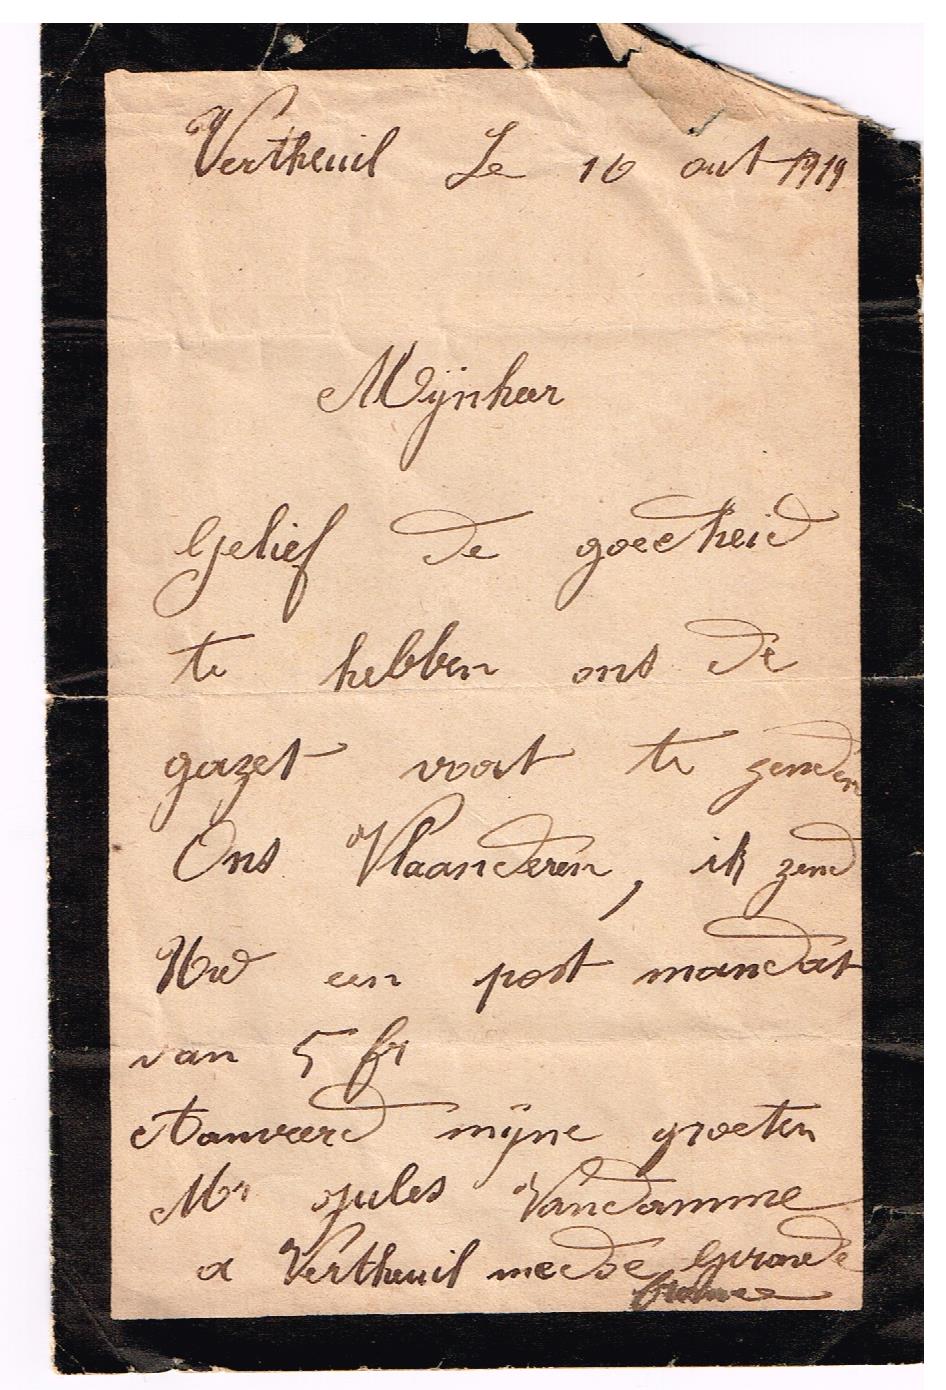 Vertheuil Le 16 out 1919
Mijnheer
Gelief de goedheid
te hebben ons de
gazet voort te zenden
Ons Vlaanderen, ik zend
Uw een post mandat
van 5 fr
Aanveerd mijne groeten
Mr Jules Vandamme
a Vertheuil medoc Gironde